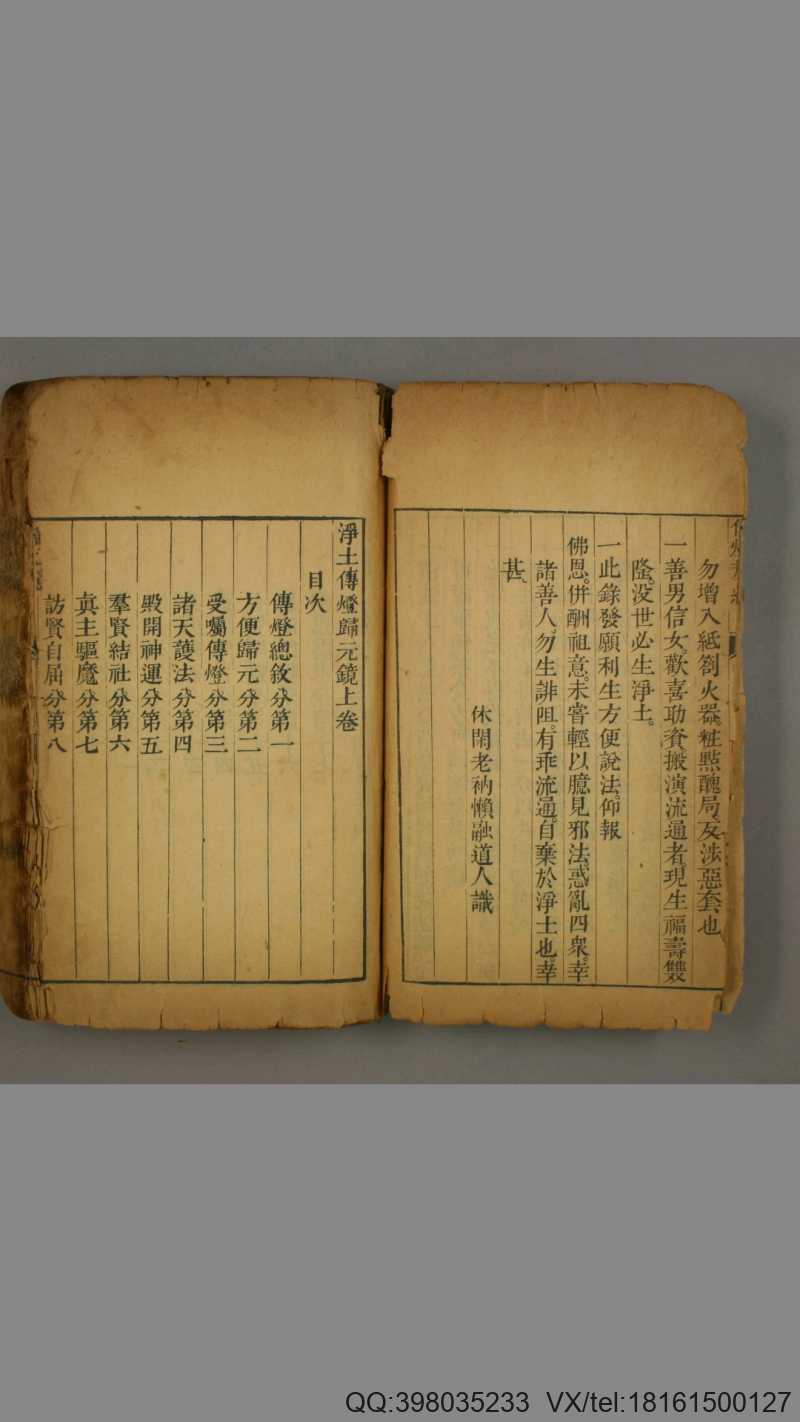 勿增入紙劄火器粧㸃醜局反涉惡套也
一善男信女歡喜助資搬演流通者現生福壽雙
隆沒世必生淨土。
一此錄發願利生方便說法仰報
佛恩。併酬祖意。未嘗輕以臆見邪法惑亂四衆幸
諸善人勿生誹阻。有乖流通。自棄於淨土也幸
甚
休閑老衲懶融道人識
淨土傳燈歸元鏡上卷
目次
傳燈總敘分第一
方便歸元分第二
受囑傳燈分第三
諸天護法分第四
殿開神運分第五
羣賢結社分第六
真主驅魔分第七
訪賢自屆分第八
QQ:398035233 VX/tel:18161500127